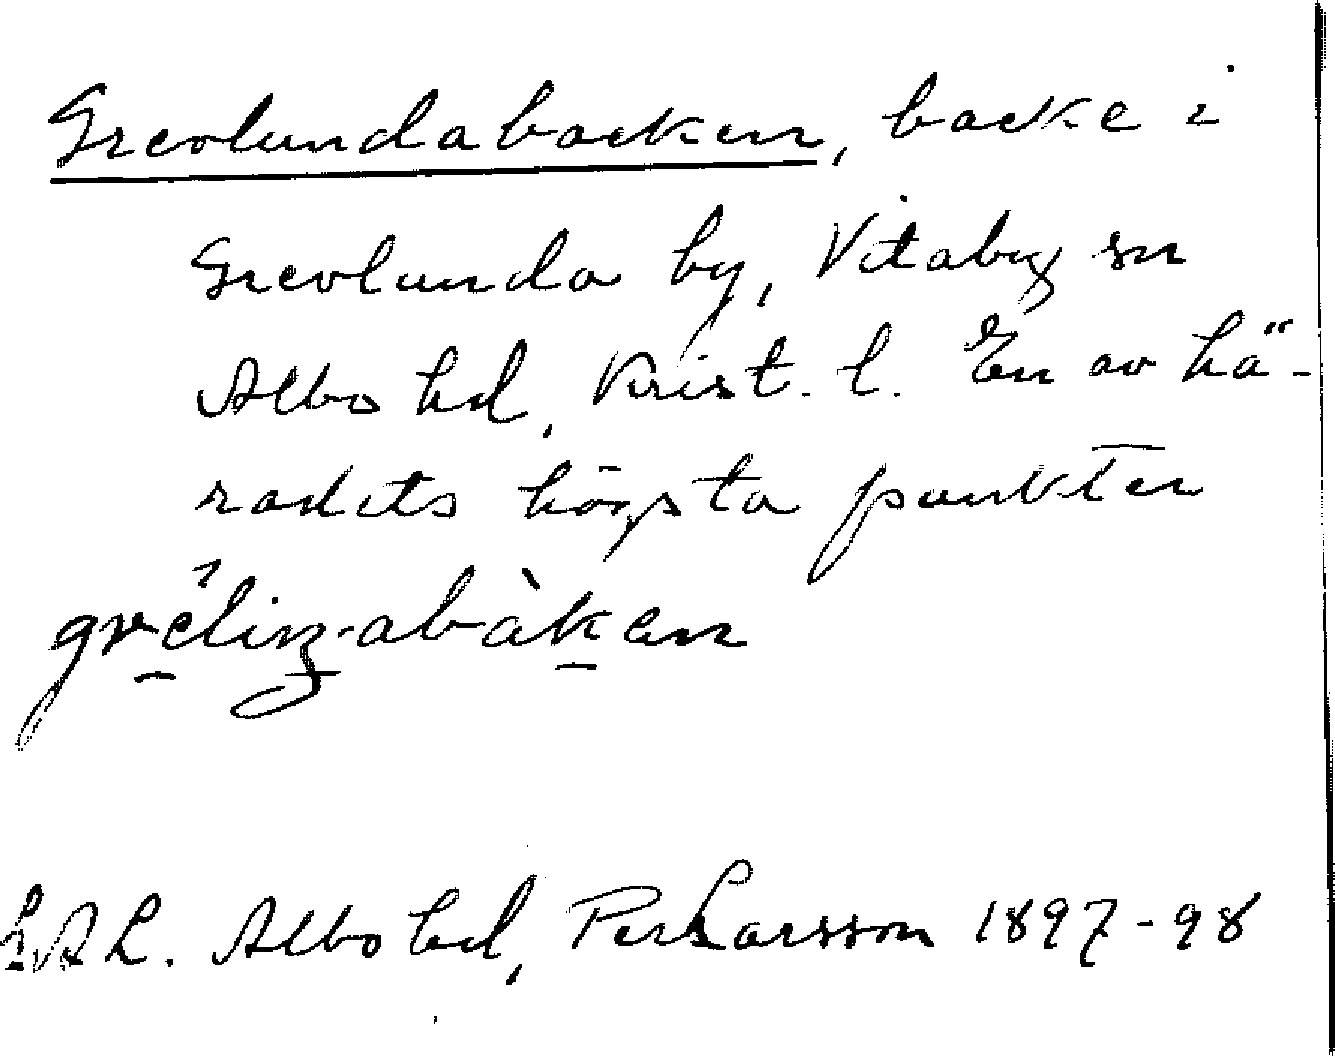 Grevlundabacken, backe i
Grevlunda by, Vitaby sn
Albo hd, Krist. l. En av hä-
radets högsta punkter
LAL. Albo hd, Per Larsson 1897-98